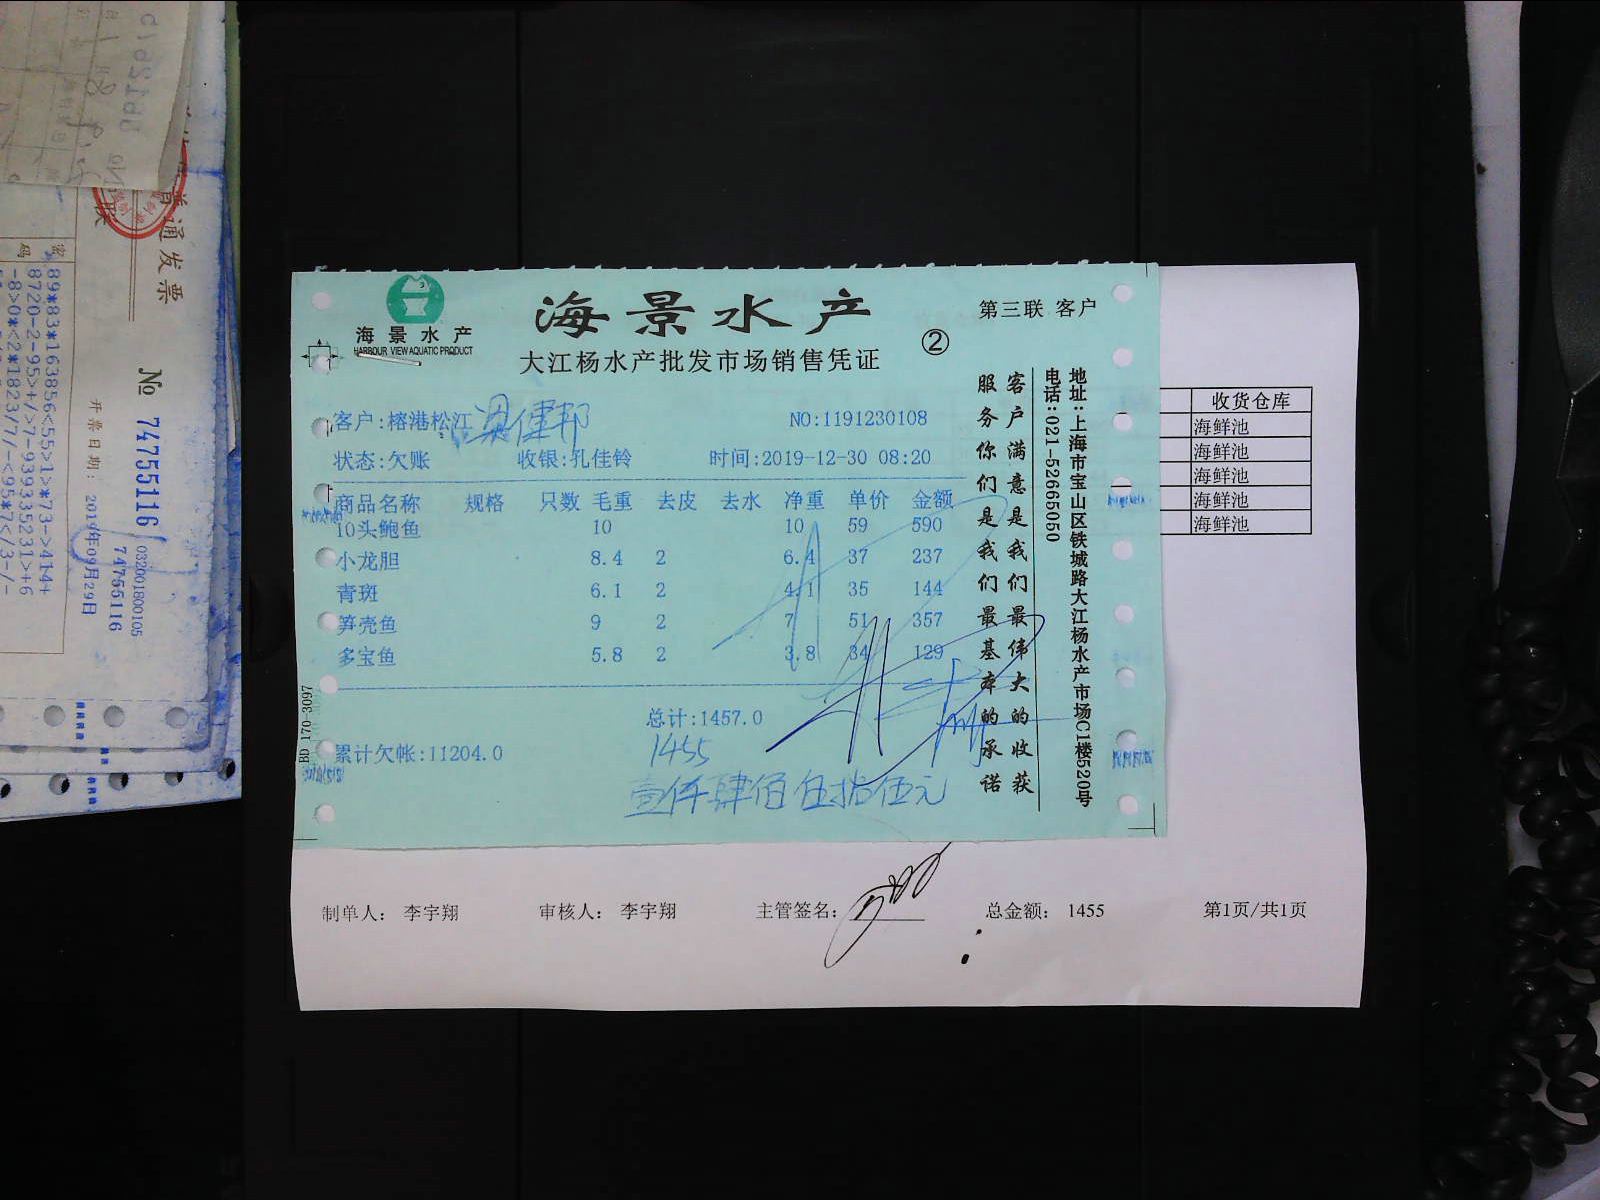 海景水产
HARBOUR VIEW AQUATIC PRODUCT
海景水产
大江杨水产批发市场销售凭证
②
第三联 客户
客户:榕港松江 梁健邦
NO:1191230108
状态:欠账 收银:孔佳铃 时间:2019-12-30 08:20
商品名称 规格 只数 毛重 去皮 去水 净重 单价 金额
10头鲍鱼 10 10 59 590
小龙胆 8.4 2 6.4 37 237
青斑 6.1 2 4.1 35 144
笋壳鱼 9 2 7 51 357
多宝鱼 5.8 2 3.8 34 129
总计:1457.0
累计欠帐:11204.0
1455
壹仟肆佰伍拾伍元
客户满意是我们最伟大的收获
服务你们是我们最基本的承诺
地址:上海市宝山区铁城路大江杨水产市场C1楼520号
电话:021-52665050
BD 170-3097
收货仓库
海鲜池
海鲜池
海鲜池
海鲜池
海鲜池
制单人: 李宇翔 审核人: 李宇翔 主管签名: 总金额: 1455 第1页/共1页
普通发票
联
№ 74755116
032001800105
74755116
开票日期: 2019年09月29日
密
码
89*83*163856<55>1>*73->414+
8720-2-95>+/>7-93935231>+6
-8>0*<2*1823/7/-<95*7</3-/-